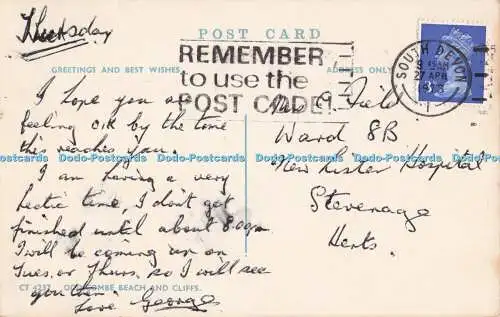 Thursday
POST CARD
REMEMBER
to use the
POST CODE!
SOUTH DEVON
9 15AM
27 APR
GREETINGS AND BEST WISHES
ADDRESS ONLY
I hope you are
feeling O.K by the time
this reaches you.
I am having a very
hectic time, I don't get
finished until about 8.00pm
I will be coming up on
Tues. or Thurs. so I will see
you then.
Love George
G. Field
Ward 8B
New Lister Hospital
Stevenage
Herts.
CT 4237 ODDICOMBE BEACH AND CLIFFS.
Dodo-Postcards Dodo-Postcards Dodo-Postcards Dodo-Postcards Dodo-Postcards